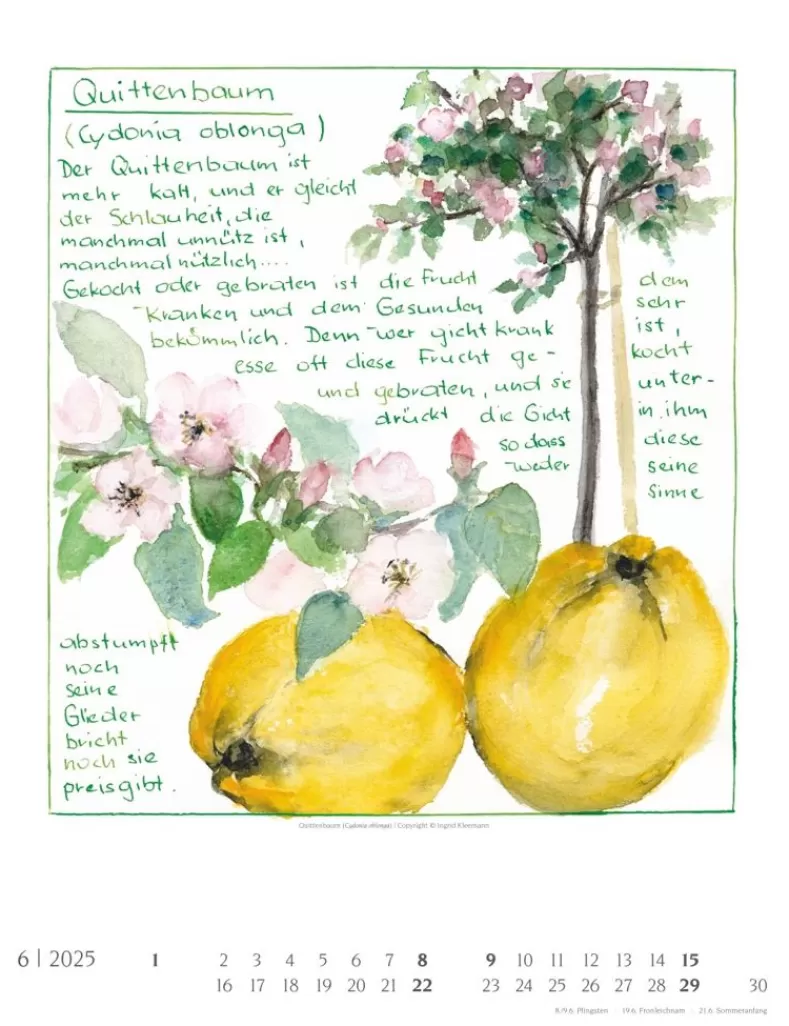 Quittenbaum
(Cydonia oblonga)
Der Quittenbaum ist
mehr kalt, und er gleicht
der Schlauheit, die
manchmal unnütz ist,
manchmal nützlich....
Gekocht oder gebraten ist die Frucht dem
Kranken und dem Gesunden sehr
bekömmlich. Denn wer gichtkrank ist,
esse oft diese Frucht ge- kocht
und gebraten, und sie unter-
drückt die Gicht in ihm
so dass diese
weder seine
Sinne
abstumpft
noch
seine
Glieder
bricht
noch sie
preisgibt.
Quittenbaum (Cydonia oblonga) / Copyright © Ingrid Kleemann
6 | 2025 1 2 3 4 5 6 7 8 9 10 11 12 13 14 15
16 17 18 19 20 21 22 23 24 25 26 27 28 29 30
8./9.6. Pfingsten 19.6. Fronleichnam 21.6. Sommeranfang